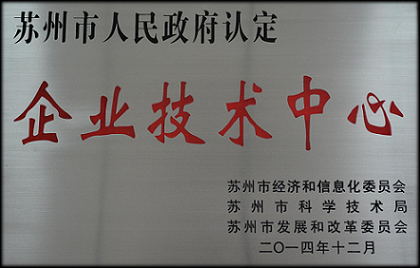 苏州市人民政府认定
企业技术中心
苏州市经济和信息化委员会
苏州市科学技术局
苏州市发展和改革委员会
二〇一四年十二月